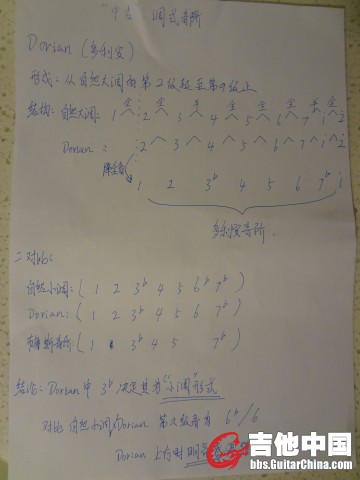 "中古" 调式音阶
Dorian (多利安)
形式：从自然大调的第2级起至第9级止
全 全 半 全 全 全 半 全
结构：自然大调：1 2 3 4 5 6 7 i 2
Dorian： 2 3 4 5 6 7 i 2
降全音
1 2 3b 4 5 6 7b i
多利安音阶.
二 对比：
自然小调：( 1 2 3b 4 5 6b 7b )
Dorian：( 1 2 3b 4 5 6 7b )
3b 4 5 7b )
结论：Dorian中 3b 决定其为"小调"形式
对比 自然小调和Dorian 第六级音为 6b/6
Dorian 上行时
吉他中国
bbs.GuitarChina.com